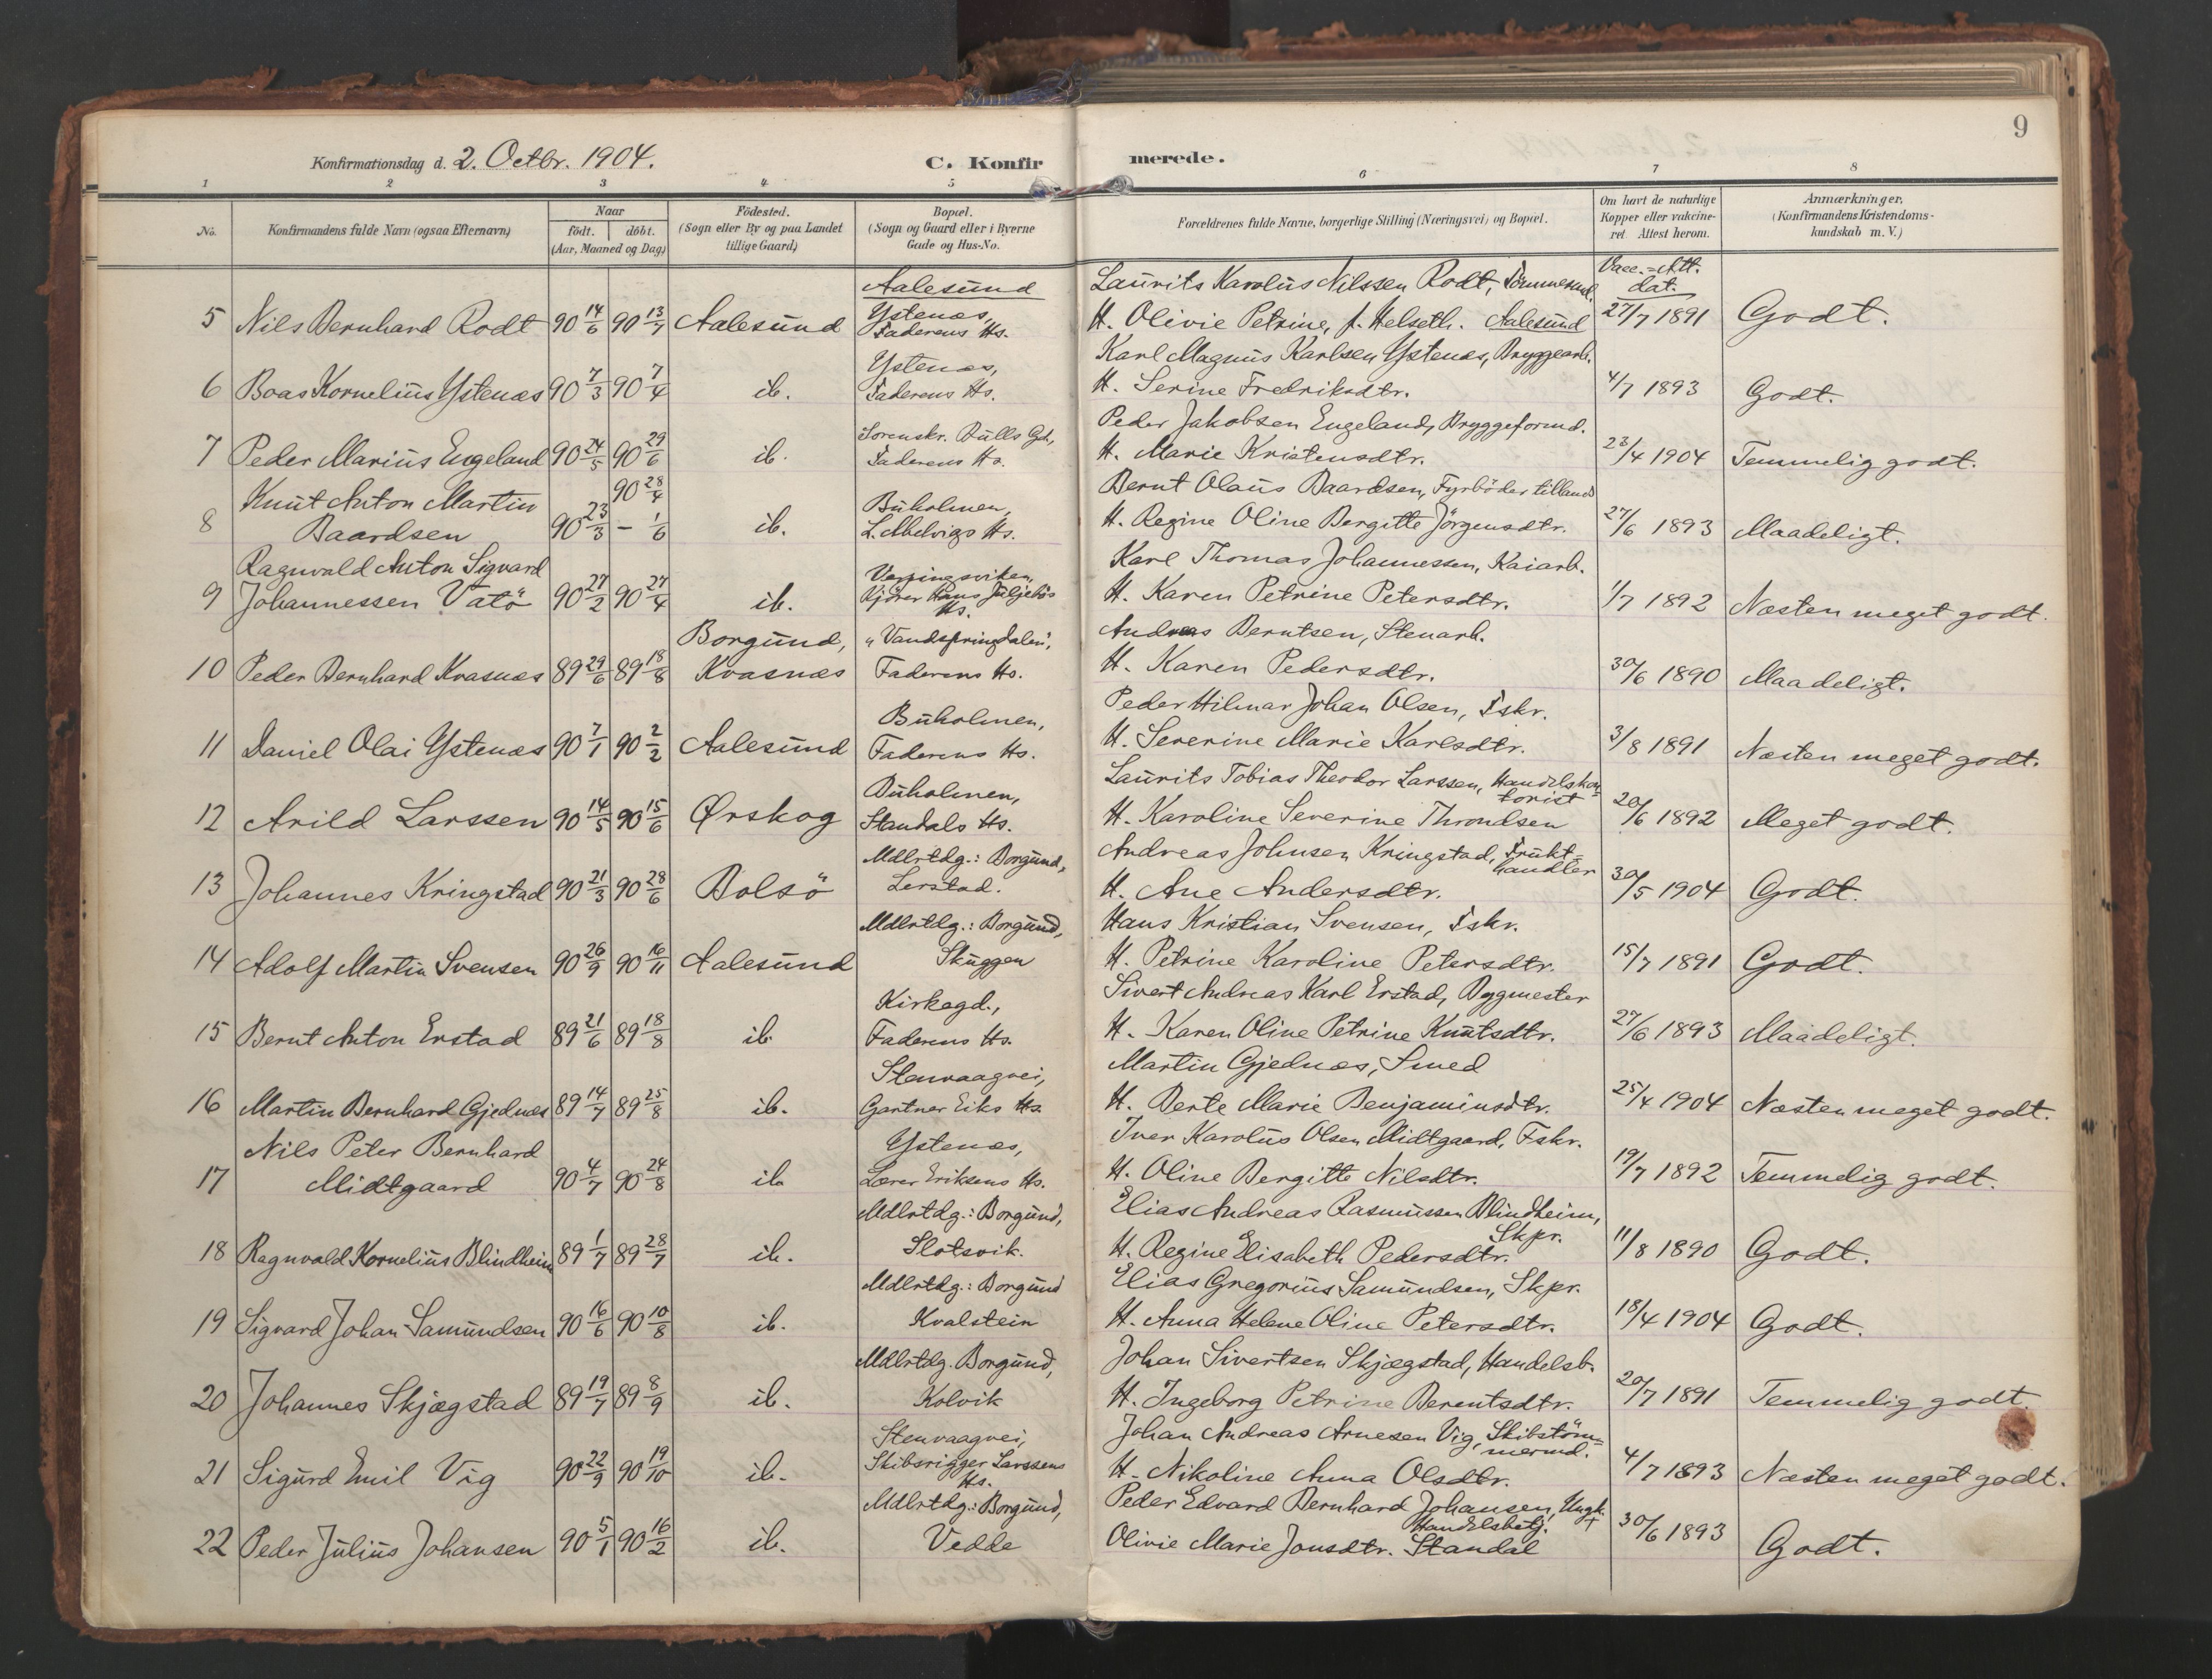 9
Konfirmationsdag d. 2. Octbr. 1904.
C. Konfirmerede.
1 2 3 4 5 6 7 8
No.
Konfirmandens fulde Navn (ogsaa Efternavn)
Naar
födt. döbt.
(Aar, Maaned og Dag)
Födested.
(Sogn eller By og paa Landet
tillige Gaard)
Bopæl.
(Sogn og Gaard eller i Byerne
Gade og Hus-No.
Forældrenes fulde Navne, borgerlige Stilling (Næringsvei) og Bopæl.
Om havt de naturlige
Kopper eller vakcine-
ret Attest herom.
Anmærkninger.
(Konfirmandens Kristendoms-
kundskab m. V.)
Aalesund
Laurits Karolus Nilssen Rodt, Tömmermd.
Vacc.=Att.
dat.
5 Nils Bernhard Rodt 90 14/6 90 13/7 Aalesund
Ystenæs,
Faderens Hs.
H. Olivie Petrine, f. Helseth. Aalesund
27/7 1891 Godt.
Ystenæs,
Karl Magnus Karlsen Ystenæs, Bryggearb.
6 Boas Kornelius Ystenæs 90 7/3 90 7/4 ib.
Faderens Hs.
H. Serine Fredriksdtr.
4/7 1893 Godt.
Sorenskr. Bulls Gd.,
Peder Jakobsen Engeland, Bryggeformd.
7 Peder Marius Engeland 90 24/5 90 29/6 ib.
Faderens Hs.
H. Marie Kristensdtr.
23/4 1904 Temmelig godt.
Knut Anton Martin 90 28/4
Buholmen,
Bernt Olaus Baardsen, Fyrböder tillands
8 Baardsen 90 23/3 – 1/6 ib.
L. Melvigs Hs.
H. Regine Oline Bergitte Jörgensdtr.
27/6 1893 Maadeligt.
Ragnvald Anton Sigvard
Karl Thomas Johannessen, Kaiarb.
9 Johannessen Vatö 90 27/2 90 27/4 ib.
Kjörer Hans Juljebös
Hs.
H. Karen Petrine Petersdtr.
1/7 1892 Næsten meget godt.
Borgund,
"Vandspringdalen",
Andreas Berntsen, Stenarb.
10 Peder Bernhard Kvasnæs 89 29/6 89 18/8 Kvasnæs
Faderens Hs.
H. Karen Pedersdtr.
30/6 1890 Maadeligt.
Buholmen,
Peder Hilmar Johan Olsen, Fskr.
11 Daniel Olai Ystenæs 90 7/1 90 2/2 Aalesund
Faderens Hs.
H. Severine Marie Karlsdtr.
3/8 1891 Næsten meget godt.
Buholmen,
Laurits Tobias Theodor Larssen, Handelskon-
torist
12 Arild Larssen 90 14/5 90 15/6 Ørskog
Standals Hs.
H. Karoline Severine Throndsen
20/6 1892 Meget godt.
Mdlrtdg.: Borgund,
Andreas Johnsen Kringstad, Frukt-
handler
13 Johannes Kringstad 90 21/3 90 28/6 Bolsö
Lerstad.
H. Ane Andersdtr.
30/5 1904 Godt.
Mdlrtdg.: Borgund,
Hans Kristian Svensen, Fskr.
14 Adolf Martin Svensen 90 26/9 90 16/11 Aalesund
Skuggen
H. Petrine Karoline Petersdtr.
15/7 1891 Godt.
Kirkegd.,
Sivert Andreas Karl Erstad, Bygmester
15 Bernt Anton Erstad 89 21/6 89 18/8 ib.
Faderens Hs.
H. Karen Oline Petrine Knutsdtr.
27/6 1893 Maadeligt.
Stenvaagvei,
Martin Gjednæs, Smed
16 Martin Bernhard Gjednæs 89 14/7 89 25/8 ib.
Gartner Eiks Hs.
H. Berte Marie Benjaminsdtr.
25/4 1904 Næsten meget godt.
Nils Peter Bernhard
Ystenæs,
Iver Karolus Olsen Midtgaard, Fskr.
17 Midtgaard 90 4/7 90 24/8 ib.
Lærer Eriksens Hs.
H. Oline Bergitte Nilsdtr.
19/7 1892 Temmelig godt.
Mdlrtdg.: Borgund,
Elias Andreas Rasmussen Blindheim,
Skpr.
18 Ragnvald Kornelius Blindheim 89 1/7 89 28/7 ib.
Slotsvik.
H. Regine Elisabeth Pedersdtr.
11/8 1890 Godt.
Mdlrtdg.: Borgund
Elias Gregorius Samundsen, Skpr.
19 Sigvard Johan Samundsen 90 16/6 90 10/8 ib.
Kvalstein
H. Anna Helene Oline Petersdtr.
18/4 1904 Godt.
Mdlrtdg. Borgund,
Johan Sivertsen Skjægstad, Handelsb.
20 Johannes Skjægstad 89 19/7 89 8/9 ib.
Kolvik
H. Ingeborg Petrine Berentsdtr.
20/7 1891 Temmelig godt.
Stenvaagvei,
Johan Andreas Arnesen Vig, Skibstöm-
mermd.
21 Sigurd Emil Vig 90 22/9 90 19/10 ib.
Skibsrigger Larssens
Hs.
H. Nikoline Anna Olsdtr.
4/7 1893 Næsten meget godt.
Mdlrtdg.: Borgund,
Peder Edvard Bernhard Johansen, Ungk.
Handelsbetj. +
22 Peder Julius Johansen 90 5/1 90 16/2 ib.
Vedde
Olivie Marie Jonsdtr. Standal
30/6 1893 Godt.